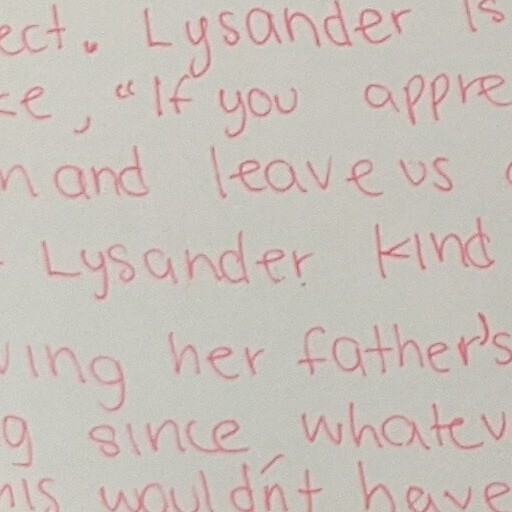 ect. Lysander is
ce, "If you appre
n and leave us
Lysander kind
ving her father's
g since, whatev
his wouldn't have